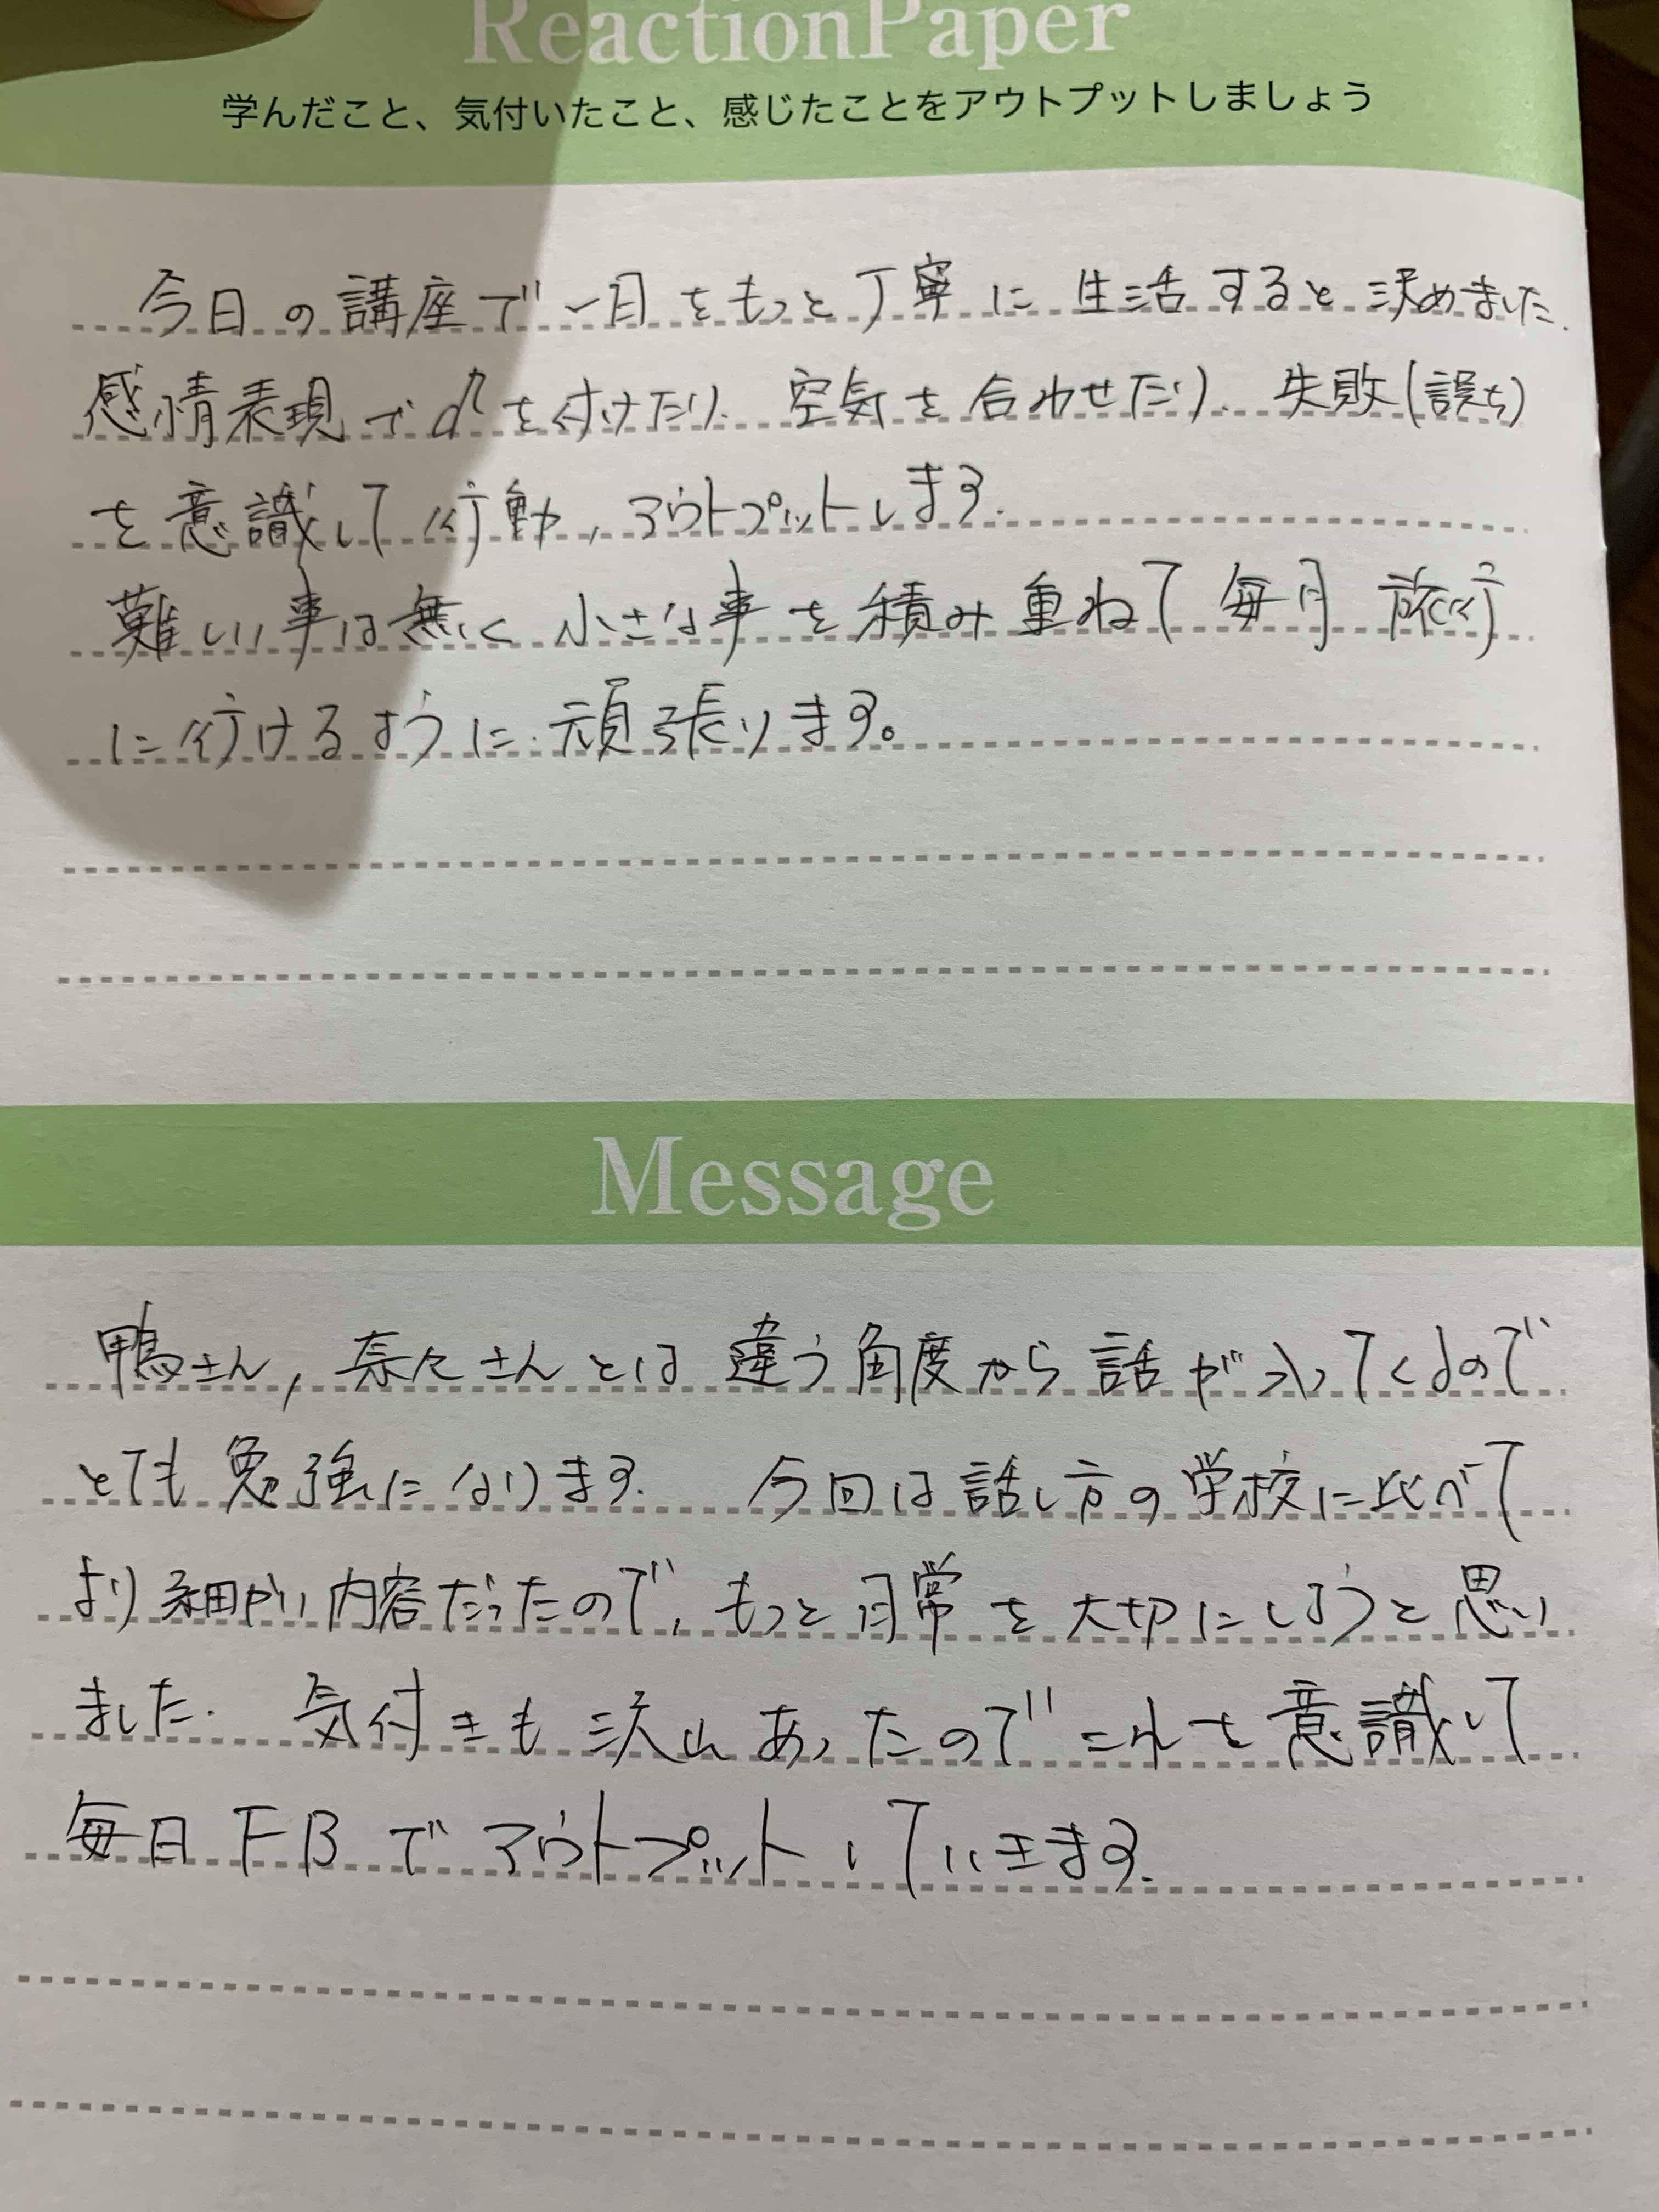 ReactionPaper
学んだこと、気付いたこと、感じたことをアウトプットしましょう
今日の講座で一日をもっと丁寧に生活すると決めました.
感情表現で を付けたり、空気を合わせたり、失敗(誤ち)
を意識して行動、アウトプットします.
難しい事は無く小さな事を積み重ねて毎月旅行
に行けるように頑張ります。
Message
鴨さん, 奈々さんとは違う角度から話が入ってくるので
とても勉強になります. 今回は話し方の学校に比べて
より細かい内容だったので、もっと日常を大切にしようと思い
ました. 気付きも沢山あったのでこれを意識して
毎日FBでアウトプットしていきます.